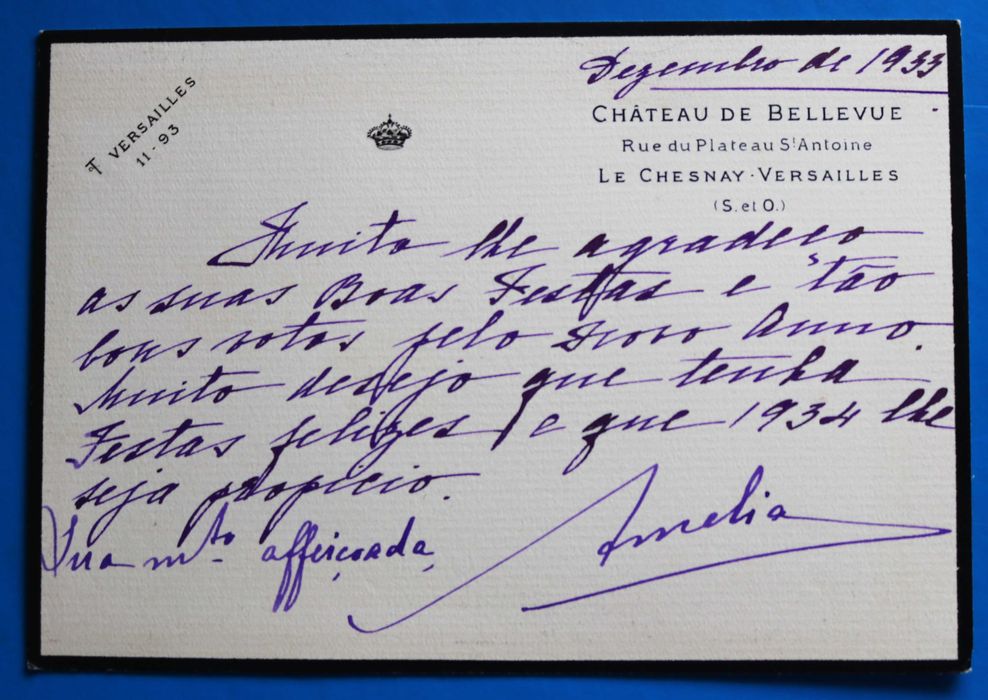 Dezembro de 1933
T VERSAILLES
11-93
CHÂTEAU DE BELLEVUE
Rue du Plateau St Antoine
LE CHESNAY·VERSAILLES
(S. et O.)
Muito lhe agradeço
as suas Boas Festas e tão
bons votos pelo Novo Anno.
Muito desejo que tenha
Festas felizes e que 1934 lhe
seja propicio.
Sua mto affeiçoada,
Amelia